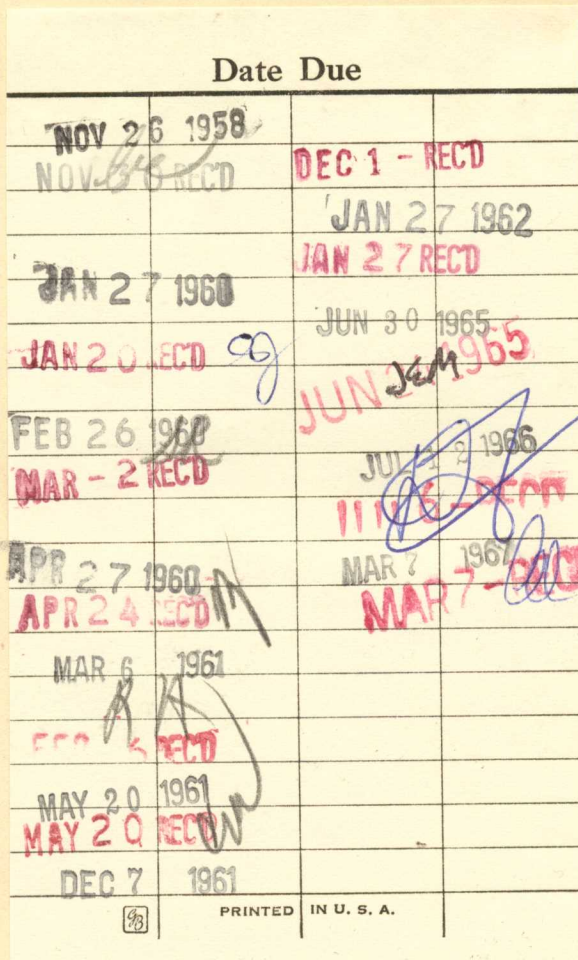 Date Due
NOV 26 1958
NOV 30 REC'D
JAN 27 1960
JAN 20 REC'D
FEB 26 1960
MAR - 2 REC'D
APR 27 1960
APR 24 REC'D
MAR 6 1961
REC'D
MAY 20 1961
MAY 20 REC'D
DEC 7 1961
DEC 1 - REC'D
JAN 27 1962
JAN 27 REC'D
JUN 30 1965
JUN 1965
JEM
JUL 12 1966
MAR 7 1967
MAR 7 - REC'D
GB
PRINTED IN U. S. A.